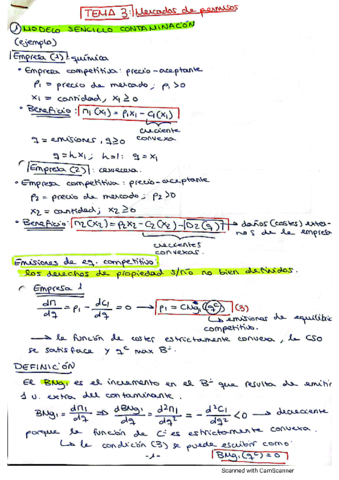 TEMA 3: Mercados de permisos
① MODELO SENCILLO CONTAMINACIÓN
(ejemplo)
Empresa (1): química
• Empresa competitiva: precio-aceptante
p₁ = precio de mercado, p₁>0
x₁ = cantidad, x₁≥0
• Beneficio: π₁(x₁) = p₁x₁ - C₁(x₁)
creciente
convexa
g = emisiones, g≥0
g = h x₁; h=1: g = x₁
Empresa (2): cervecera.
• Empresa competitiva: precio-aceptante
p₂ = precio de mercado; p₂>0
x₂ = cantidad; x₂≥0
• Beneficio: π₂(x₂) = p₂x₂ - C₂(x₂) - D₂(g) → daños (costes) exter-
nos de la empresa
crecientes
convexas.
Emisiones de eq. competitivo:
los derechos de propiedad s/no no bien definidos.
• Empresa 1
dπ/dg = p₁ - dC₁/dg = 0 → p₁ = CMg₁(gᶜ) (3)
↳ emisiones de equilibrio
competitivo.
→ la función de costes estrictamente convexa, la CSO
se satisface y gᶜ max Bº
DEFINICIÓN
El BMg₁ es el incremento en el Bº que resulta de emitir
1 u. extra del contaminante.
BMg₁ = dπ₁/dg ⇒ dBMg₁/dg = d²π₁/dg² = - d²C₁/dg² < 0 → decreciente
porque la función de C¹ es estrictamente convexa.
↳ la condición (3) se puede escribir como:
BMg₁(gᶜ) = 0
-1-
Scanned with CamScanner